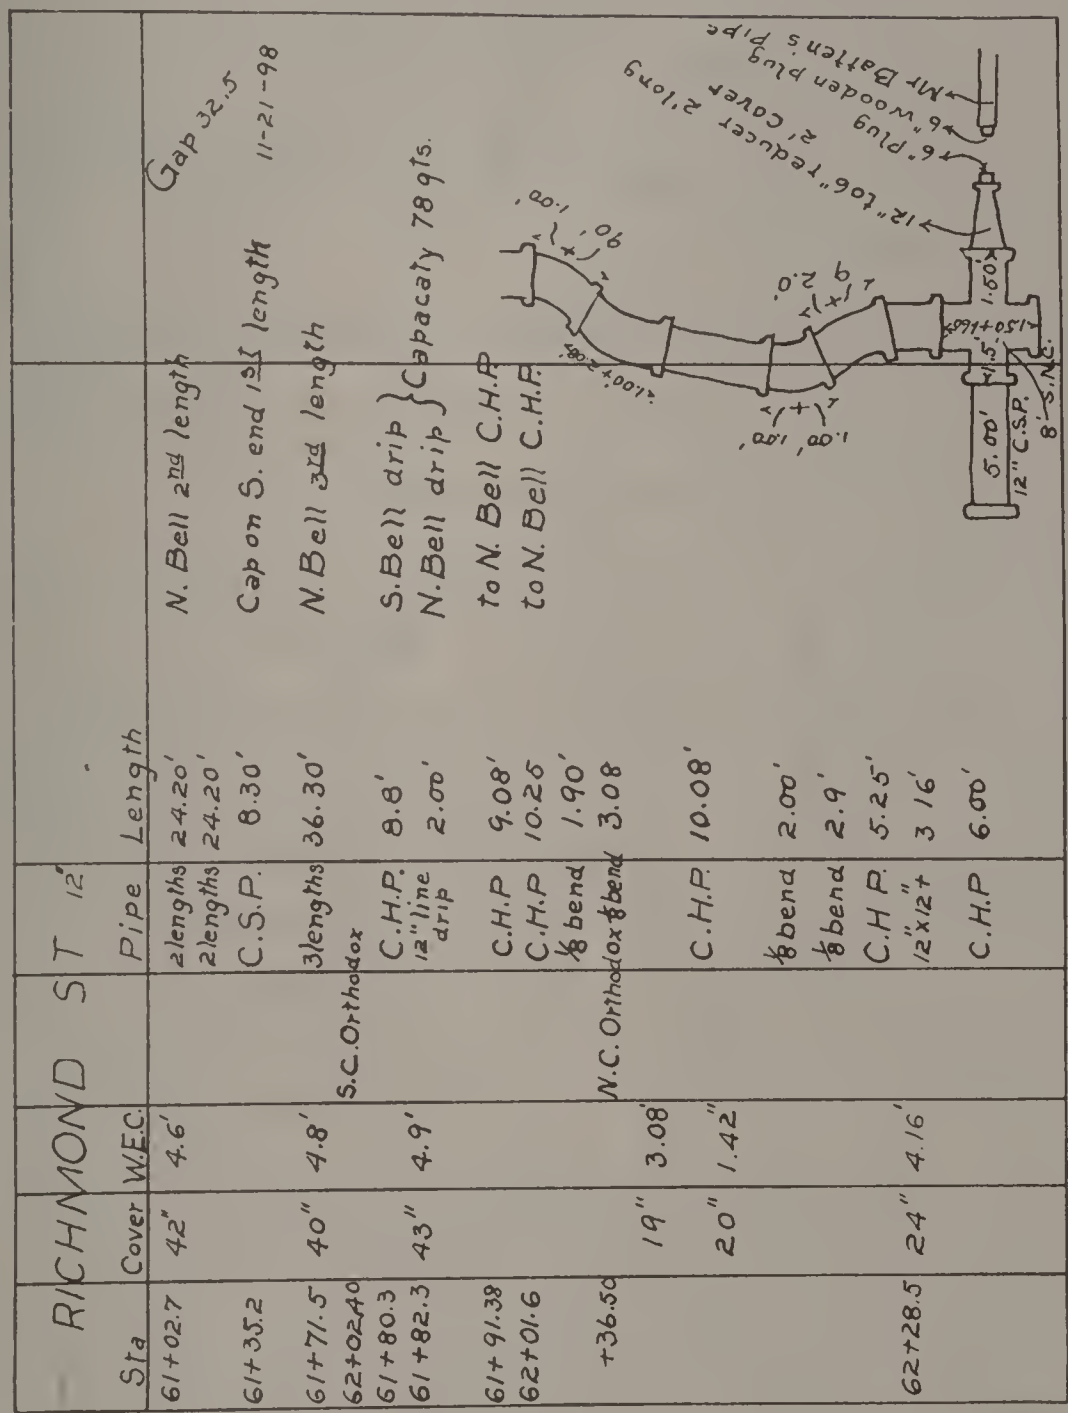 RICHMOND ST 12"
Sta Cover W.E.C. Pipe Length
61+02.7 42" 4.6' 2 lengths 24.20' N. Bell 2nd length Gap 32.5
2 lengths 24.20'
61+35.2 C.S.P. 8.30' Cap on S. end 1st length 11-21-98
61+71.5 40" 4.8' 3 lengths 36.30' N. Bell 3rd length
62+02.40 S.C. Orthodox
61+80.3 C.H.P. 8.8' S. Bell drip } Capacaty 78 qts.
61+82.3 43" 4.9' 12" line drip 2.00' N. Bell drip }
61+91.38 C.H.P 9.08' to N. Bell C.H.P
62+01.6 C.H.P 10.25 to N. Bell C.H.P.
⅛ bend 1.90'
+36.50 N.C. Orthodox ⅛ bend 3.08
19" 3.08'
20" 1.42" C.H.P. 10.08'
⅛ bend 2.00'
⅛ bend 2.9'
62+28.5 24" 4.16' C.H P. 5.25'
12"x12"+ 3 16'
C.H.P 6.00'
1.00'
90'
1.00+2.08'
1.00' 1.00'
9 2.0'
1.50+1.66
1.50'
1.5'
5.00'
12" C.S.P.
8' S.N.C.
12" to 6" reducer 2' long
2' Cover
6" Plug
6" wooden plug
Mr Batten's pipe